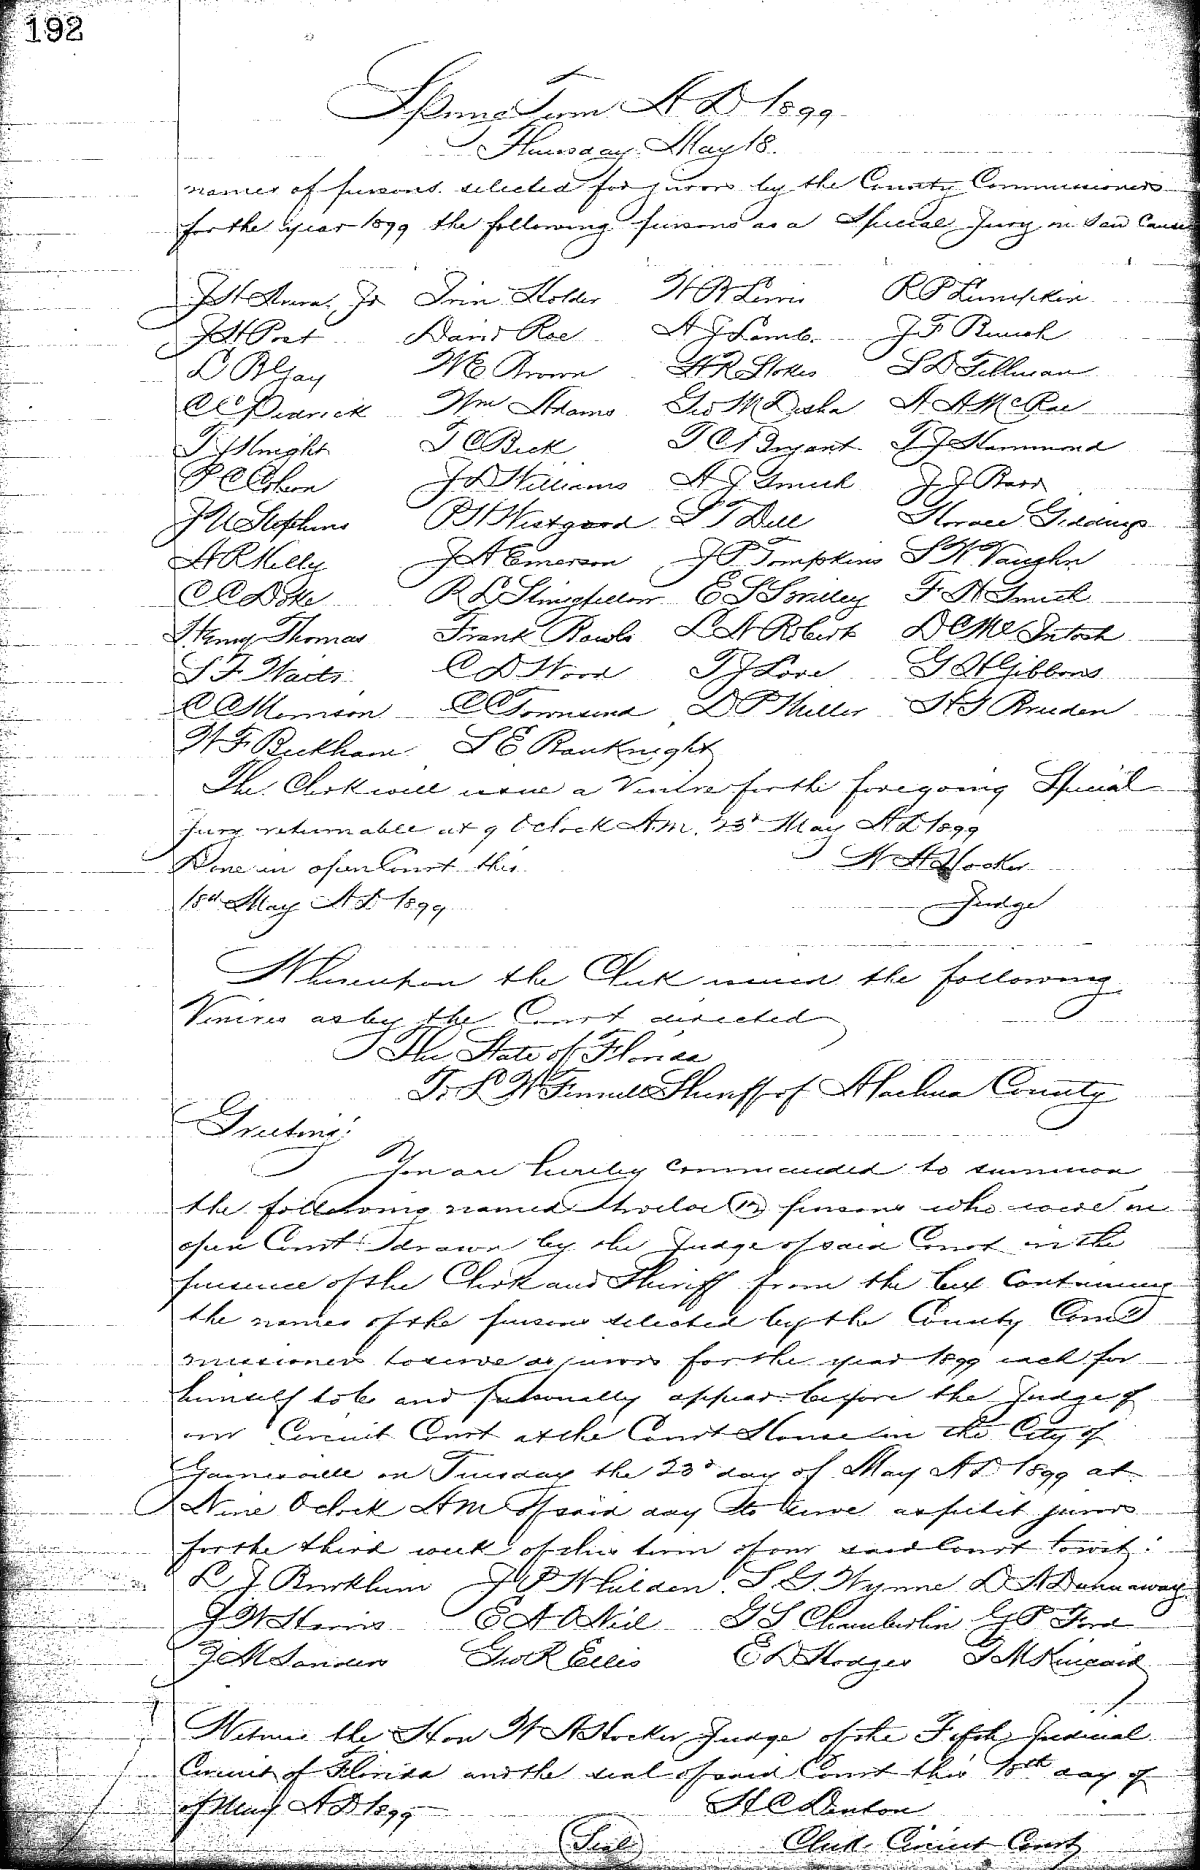 192
Spring Term A D 1899
Thursday May 18.
names of persons selected for jurors by the County Commissioners
for the year 1899 the following persons as a Special Jury in said Cause
J H Jr Irvin Holder W B Lewis R P Lumpkin
J H Post David Roe A J Lamb. J F Rush
L B Gay W E Brown H R Stokes S D Tillman
C C Pedrick Wm Adams Geo M Disha A A McRae
T J Knight T C Beck T C Bryant T J Hammond
P C J D Williams A J Smith J J Barr
J N Stephens P H Westgard S T Dell Horace Giddings
A R Kelly J A Emerson J P Tompkins S W Vaughn
C C Doke R L Stringfellow E S Smiley F A Smith
Henry Thomas Frank Rawls L A Robert D C McIntosh
S F Waits C D Wood T J Love G A Gibbons
C C Morrison C C Townsend D P Miller H J Bruden
W F Beckham S E Bauknight
The Clerk will issue a Venire for the foregoing Special
Jury returnable at 9 Oclock A.M. 23d May A D 1899
Done in open Court this W A Hocker
18th May A D. 1899 Judge
Whereupon the Clerk issued the following
Venires as by the Court directed
The State of Florida
To L W Fennell Sheriff of Alachua County
Greeting:
You are hereby commanded to summon
the following named twelve (12) persons who were in
open Court drawn by the Judge of said Court in the
presence of the Clerk and Sheriff from the box containing
the names of the persons selected by the County Com
missioners to serve as jurors for the year 1899 each for
himself to be and personally appear before the Judge of
our Circuit Court at the Court House in the City of
Gainesville on Tuesday the 23d day of May A D. 1899 at
Nine Oclock A M of said day to serve as petit jurors
for the third week of this term of our said Court to wit:
L J Burkhim J P Whilden. S. G. Wynne D A Dunnaway
J W Harris E A O Neil G S Chamberlin G P Ford
J M Sanders Geo R Ellis E D Hodges J M Kincaid
Witness the Hon W A Hocker Judge of the Fifth Judicial
Circuit of Florida and the seal of said Court this 18th day of
of May A D 1899 H C Denton
(Seal) Clerk Circuit Court